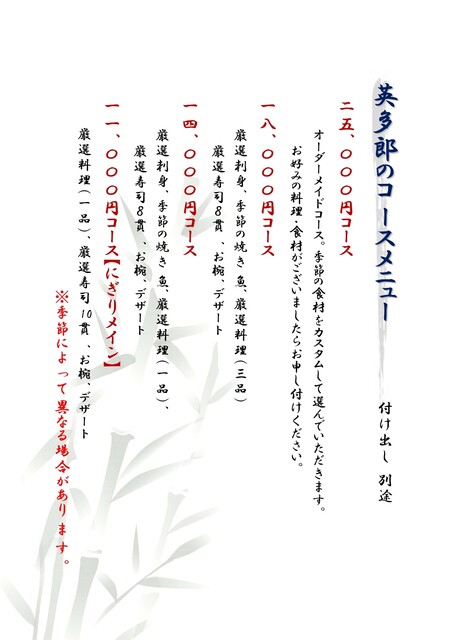 英多郎のコースメニュー
付け出し 別途
二五、〇〇〇円コース
オーダーメイドコース。季節の食材をカスタムして選んでいただきます。
お好みの料理・食材がございましたらお申し付けください。
一八、〇〇〇円コース
厳選刺身、季節の焼き魚、厳選料理(三品)
厳選寿司8貫、お椀、デザート
一四、〇〇〇円コース
厳選刺身、季節の焼き魚、厳選料理(一品)、
厳選寿司8貫、お椀、デザート
一一、〇〇〇円コース【にぎりメイン】
厳選料理(一品)、厳選寿司10貫、お椀、デザート
※季節によって異なる場合があります。